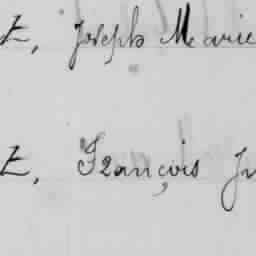 Z, Joseph Marie
Z, François